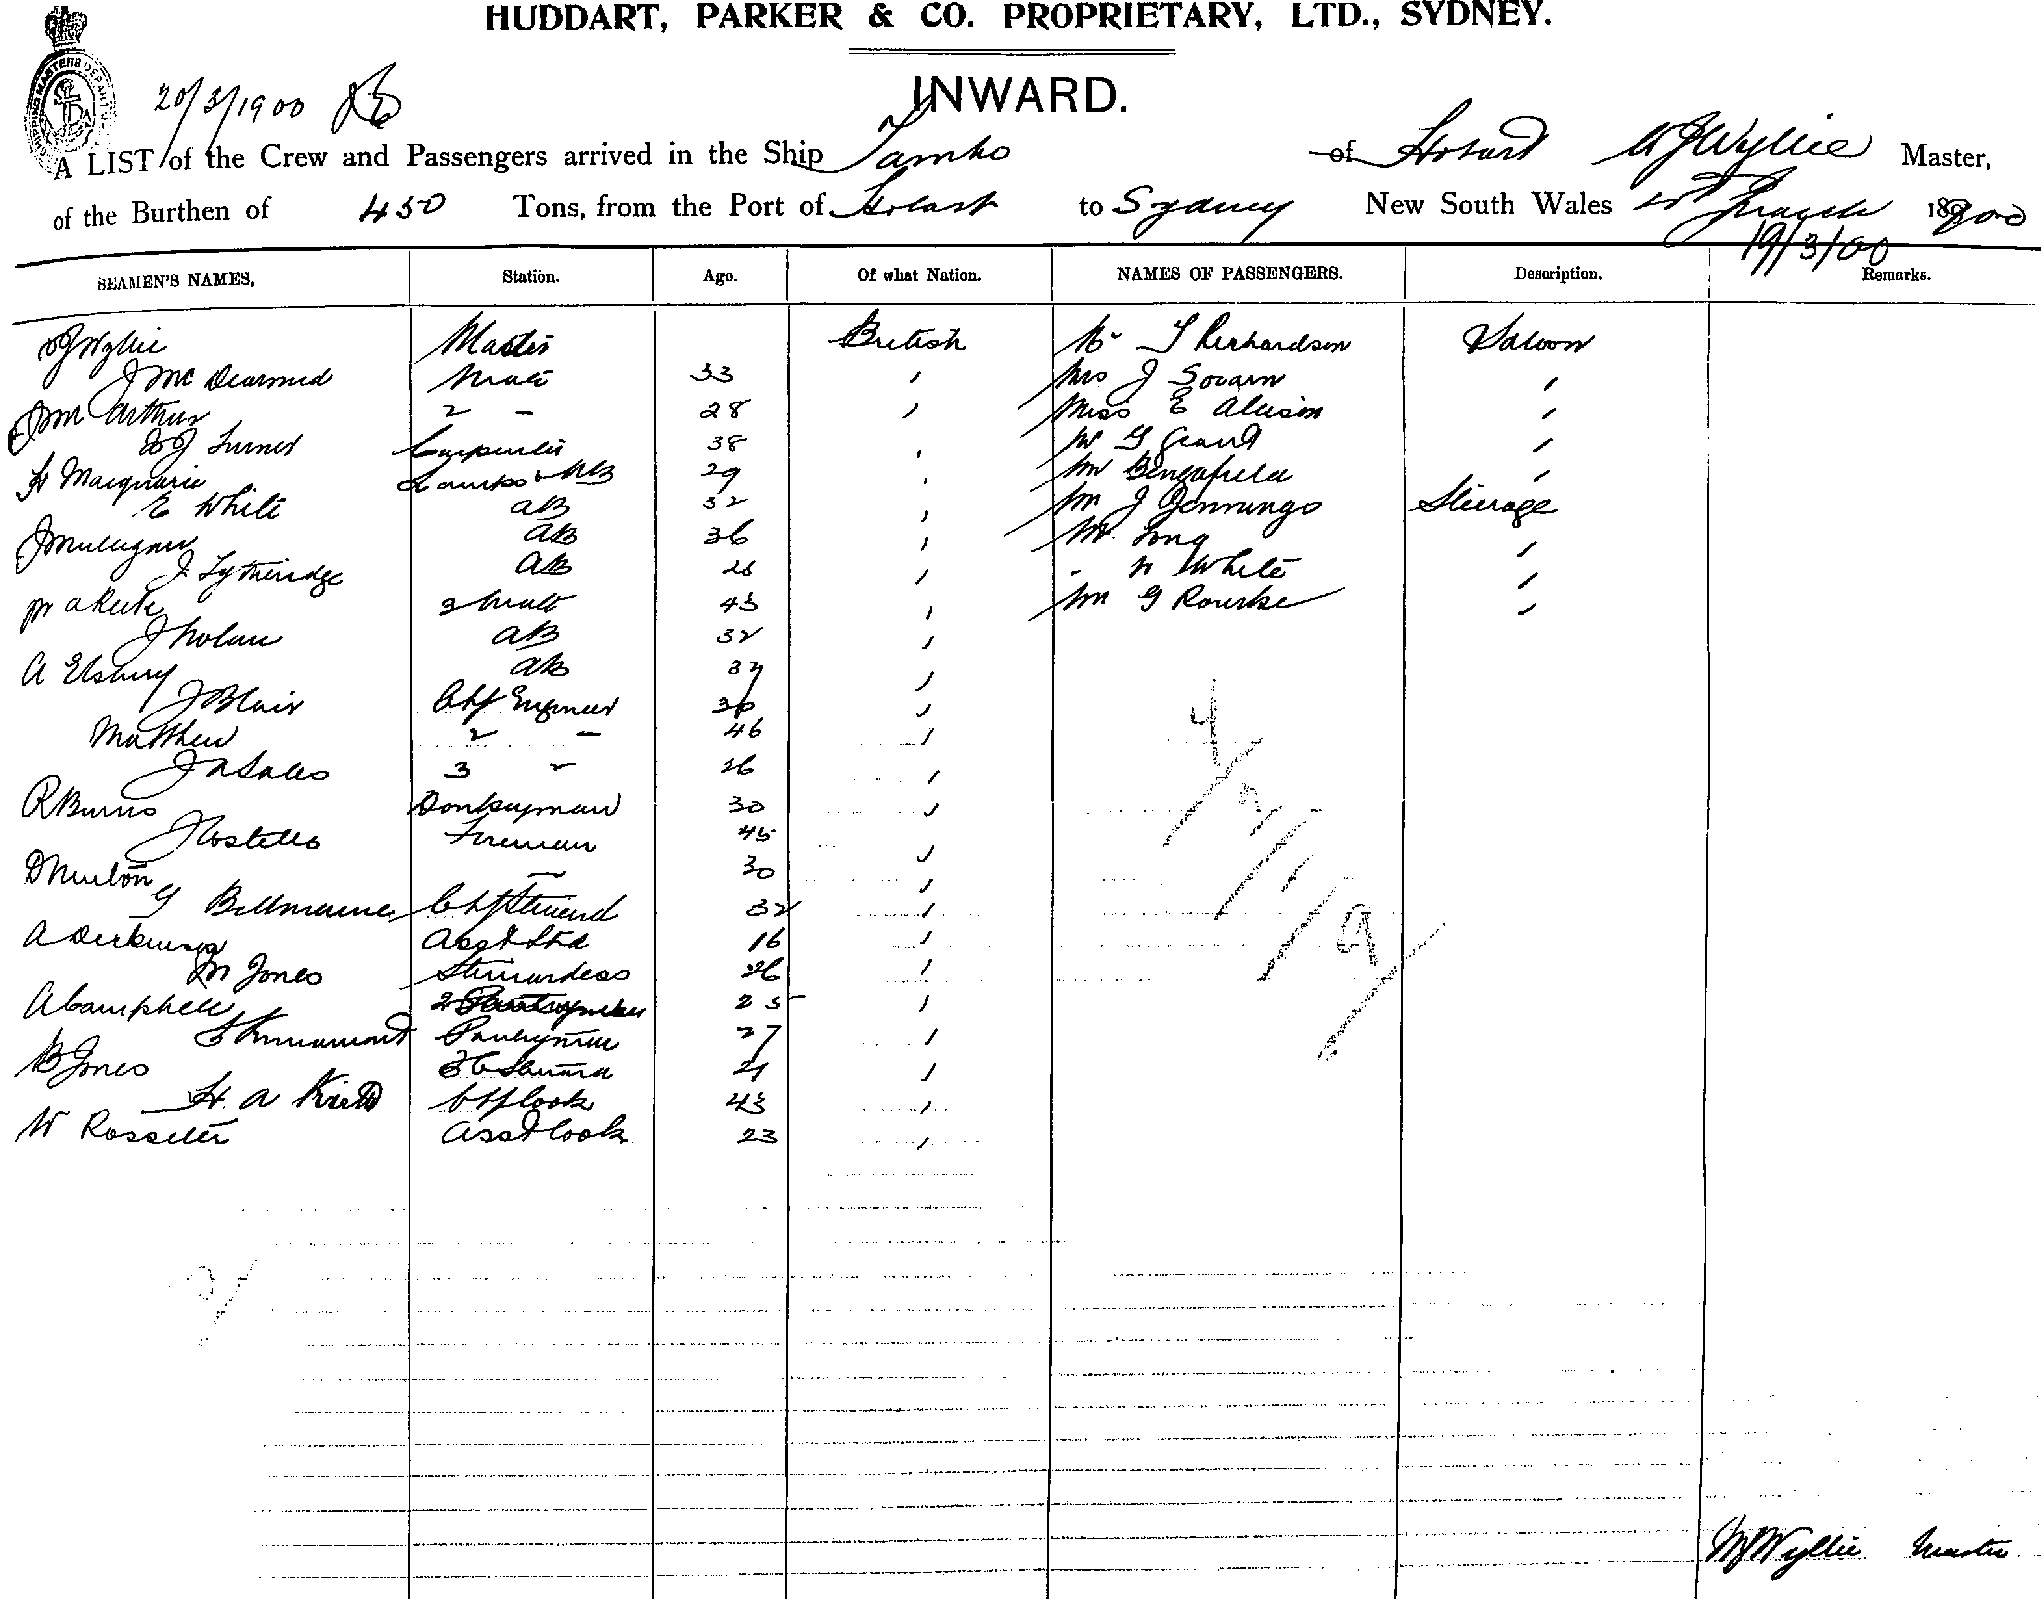 HUDDART, PARKER & CO. PROPRIETARY, LTD., SYDNEY.
INWARD.
20/3/1900
A LIST of the Crew and Passengers arrived in the Ship Tambo of Hobart W J Wyllie Master,
of the Burthen of 450 Tons, from the Port of Hobart to Sydney New South Wales March 18 900
19/3/00
SEAMEN'S NAMES. Station. Age. Of what Nation. NAMES OF PASSENGERS. Description. Remarks.
W J Wyllie Master British Mr T Richardson Saloon
J Mc Dearmid Mate 33 " Mrs J Sowarn "
J Mc Arthur 2 - 28 " Miss E Alison "
W J Turner Carpenter 38 " Mr G Grant "
H Macquarie Lamps & AB 29 " Mr Bengafield "
E White AB 32 " Mr J Jennings Steerage
J Mulligan AB 36 " Mr Long "
J Lytheridge AB " White "
3 Mate 43 " Mr G Rourke "
J Nolan AB 32 "
A Elsbury AB 37 "
J Blair Chf Engineer 36 "
Matthew 2 - 46 "
3 - 26 "
R Burns Donkeyman 30 "
J Costello Fireman 45 "
D Newton - 30 "
G Bellmaine Chf Steward 32 "
A Asst Std 16 "
M Jones Stewardess 26 "
A Campbell 2 25 "
Pantryman 27 "
B Jones 21 "
H. A Chf Cook 43 "
W Rosseter Asst Cook 23 "
W J Wyllie Master